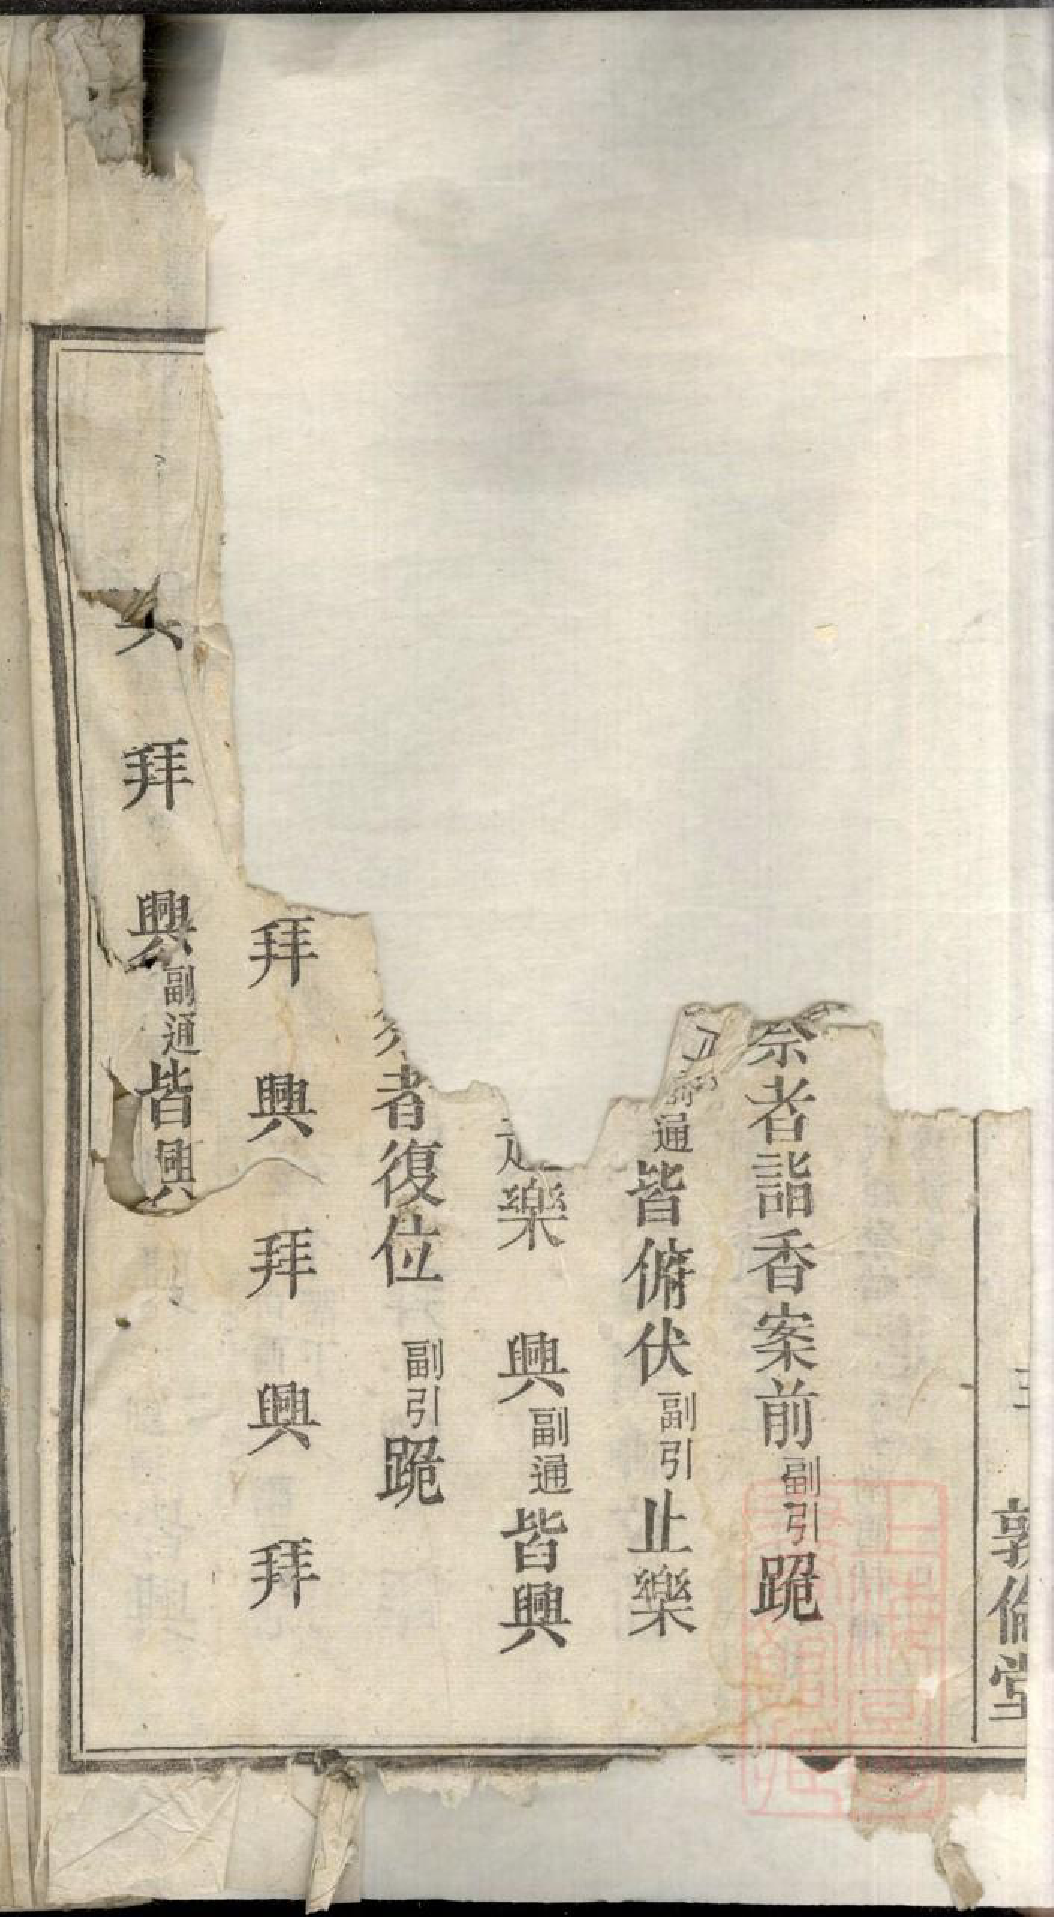 祭者詣香案前副引跪
通皆俯伏副引止樂
樂　興副通皆興
者復位　副引跪
拜　興　拜　興　拜
拜　興副通皆興
敦倫堂